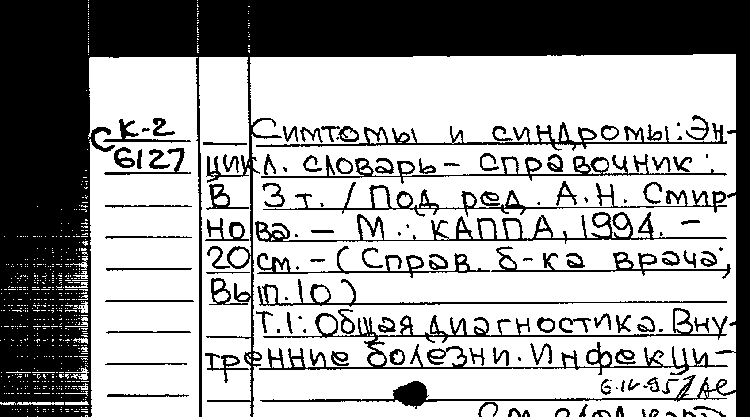 С К-2
6127
Симтомы и синдромы: Эн-
цикл. словарь - справочник:
В 3 т. / Под ред. А.Н. Смир-
нова. - М.: КАППА, 1994. -
20 см. - (Справ. б-ка врача;
Вып.10)
Т.1: Общая диагностика. Вну-
тренние болезни. Инфекци-
6.IV-95
См. след. карт.